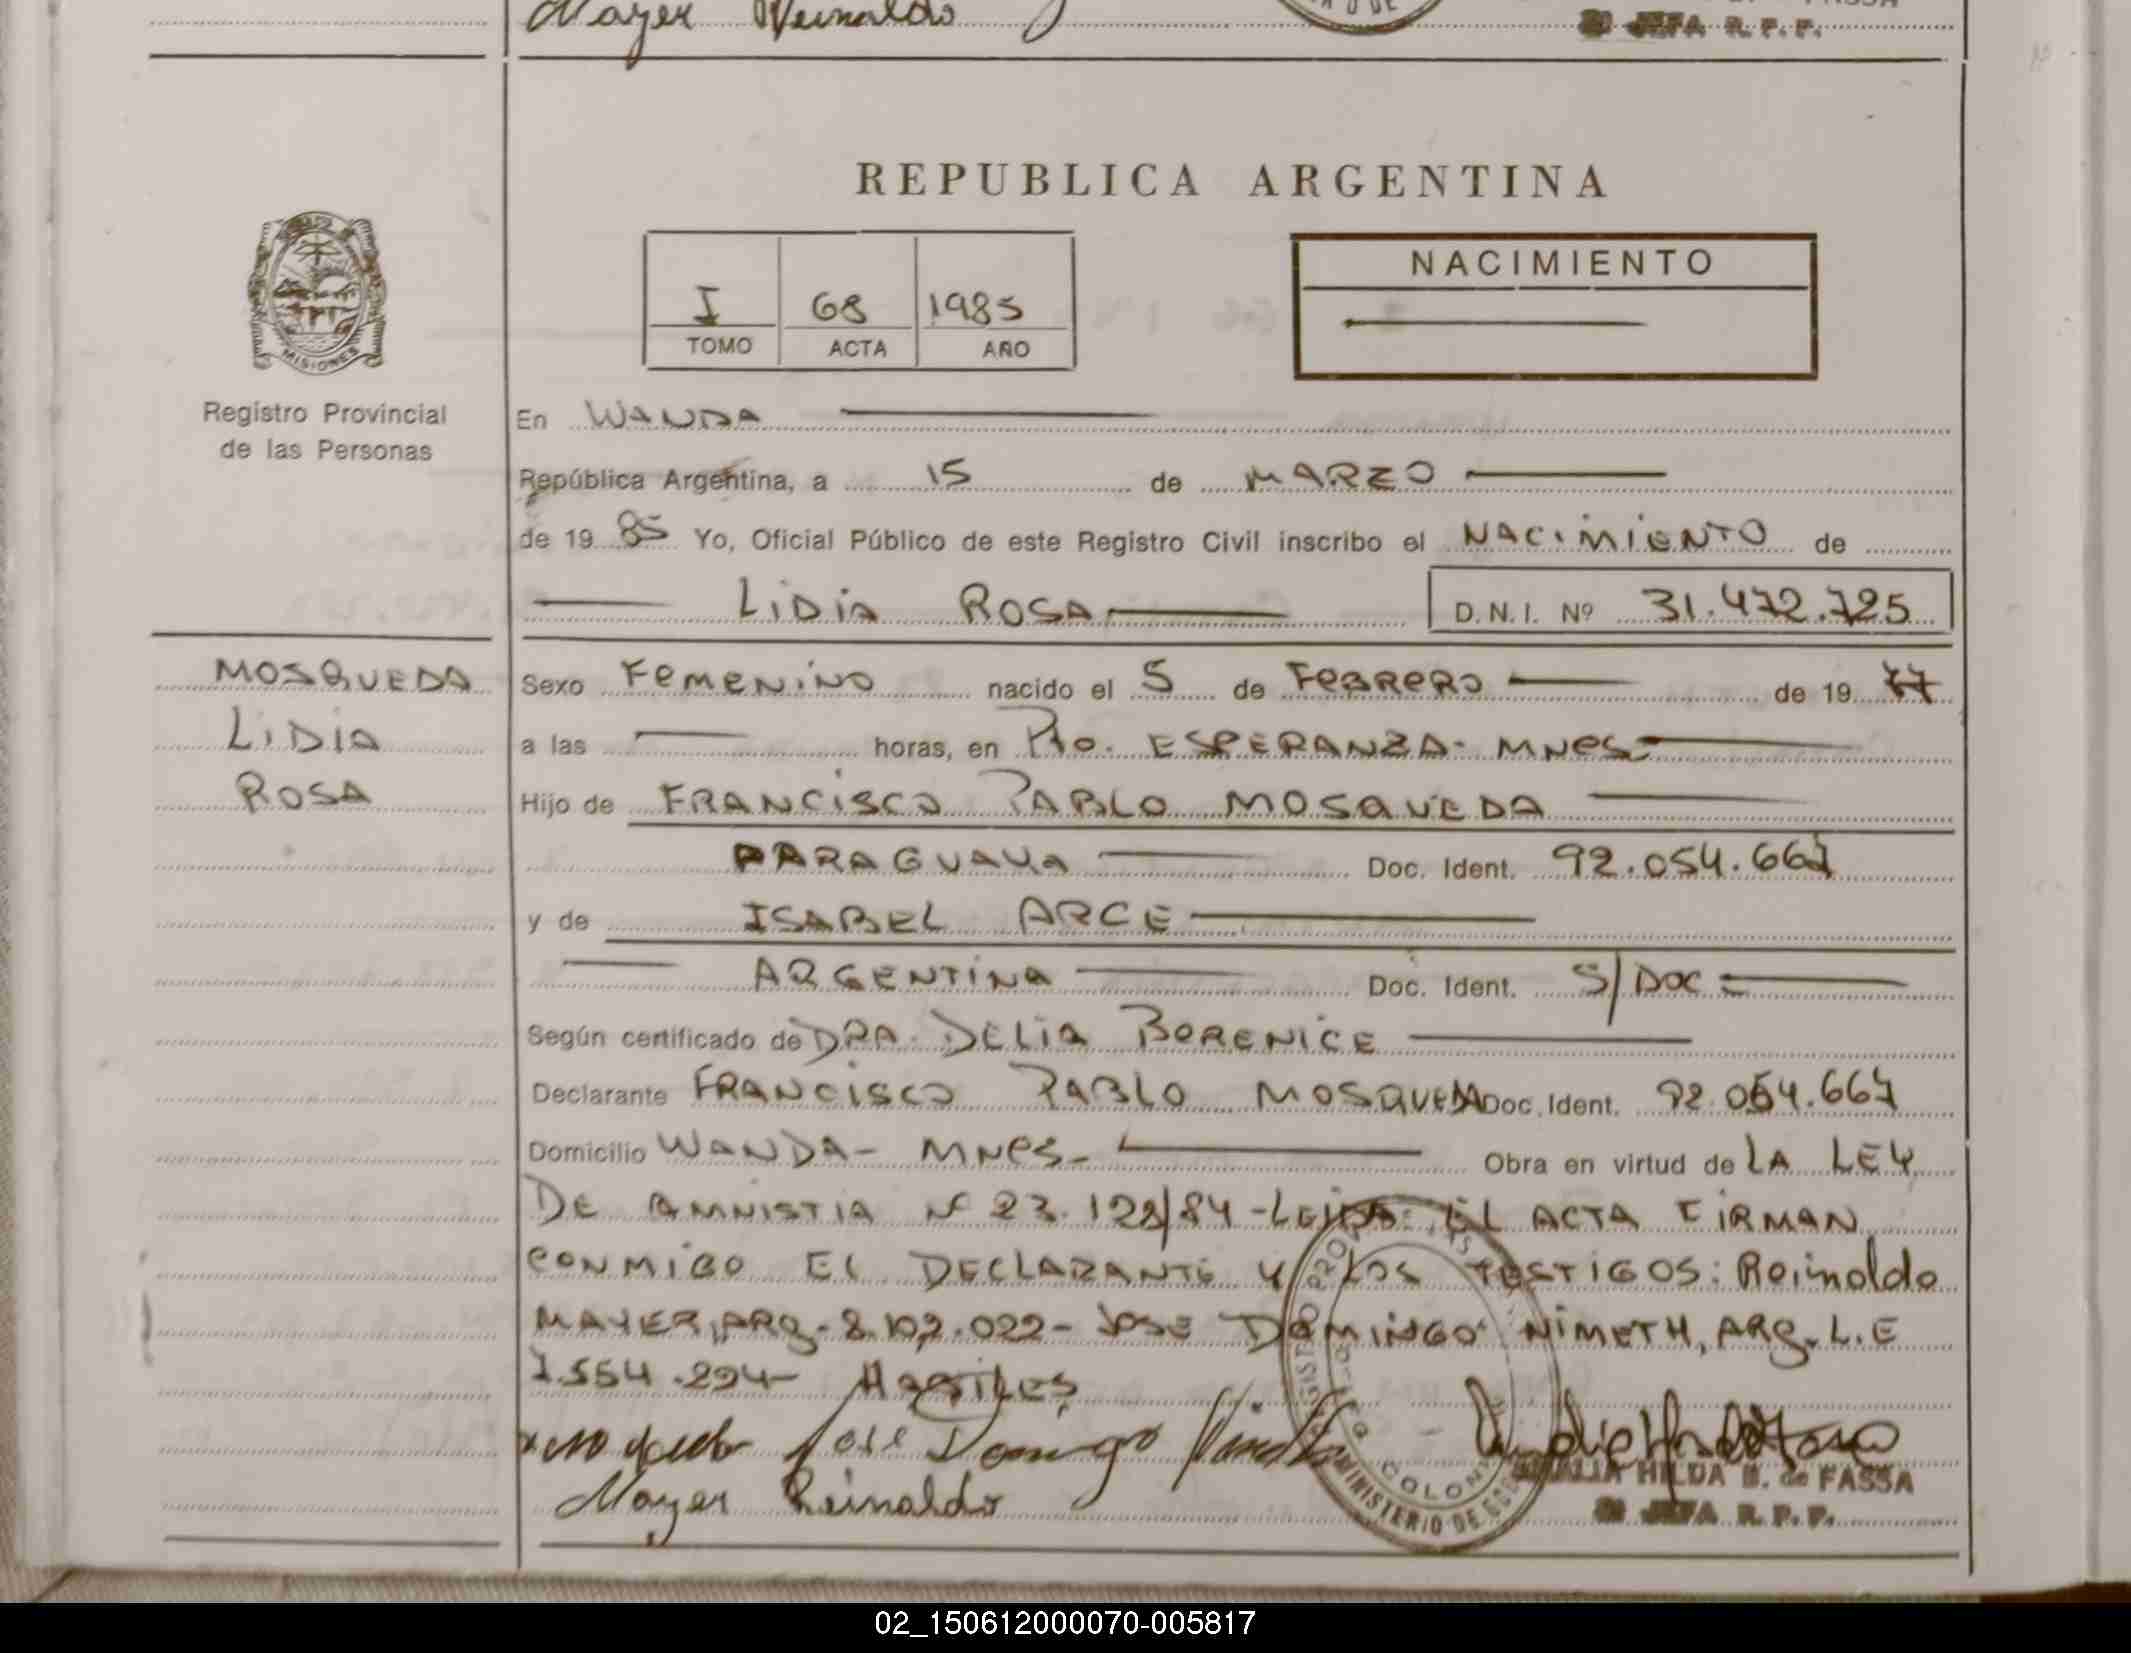 Mayer Reinaldo
JEFA R. P. P.
REPUBLICA ARGENTINA
MISIONES
Registro Provincial
de las Personas
I 68 1985
TOMO ACTA AÑO
NACIMIENTO
En WANDA
República Argentina, a 15 de MARZO
de 19 85 Yo, Oficial Público de este Registro Civil inscribo el NACIMIENTO de
LIDIA ROSA D.N.I. Nº 31.472.725
MOSQUEDA
LIDIA
ROSA
Sexo FEMENINO nacido el 5 de FEBRERO de 19 77
a las horas, en Pto. ESPERANZA- MNES-
Hijo de FRANCISCO PABLO MOSQUEDA
PARAGUAYA Doc. Ident. 92.054.667
y de ISABEL ARCE
ARGENTINA Doc. Ident. S/DOC
Según certificado de DRA. DELIA BERENICE
Declarante FRANCISCO PABLO MOSQUEDA Doc. Ident. 92.054.667
Domicilio WANDA- MNES- Obra en virtud de LA LEY
DE AMNISTIA Nº 23.128/84 -LEIDA EL ACTA FIRMAN
CONMIGO EL DECLARANTE Y LOS TESTIGOS: Reinaldo
MAYER, ARG- 8.102.022- JOSE DOMINGO NIMETH, ARG. L.E
7.554.294-
Jose Domingo
Mayer Reinaldo
COLONIA
MINISTERIO DE
HILDA B. de FASSA
JEFA R. P. P.
02_150612000070-005817